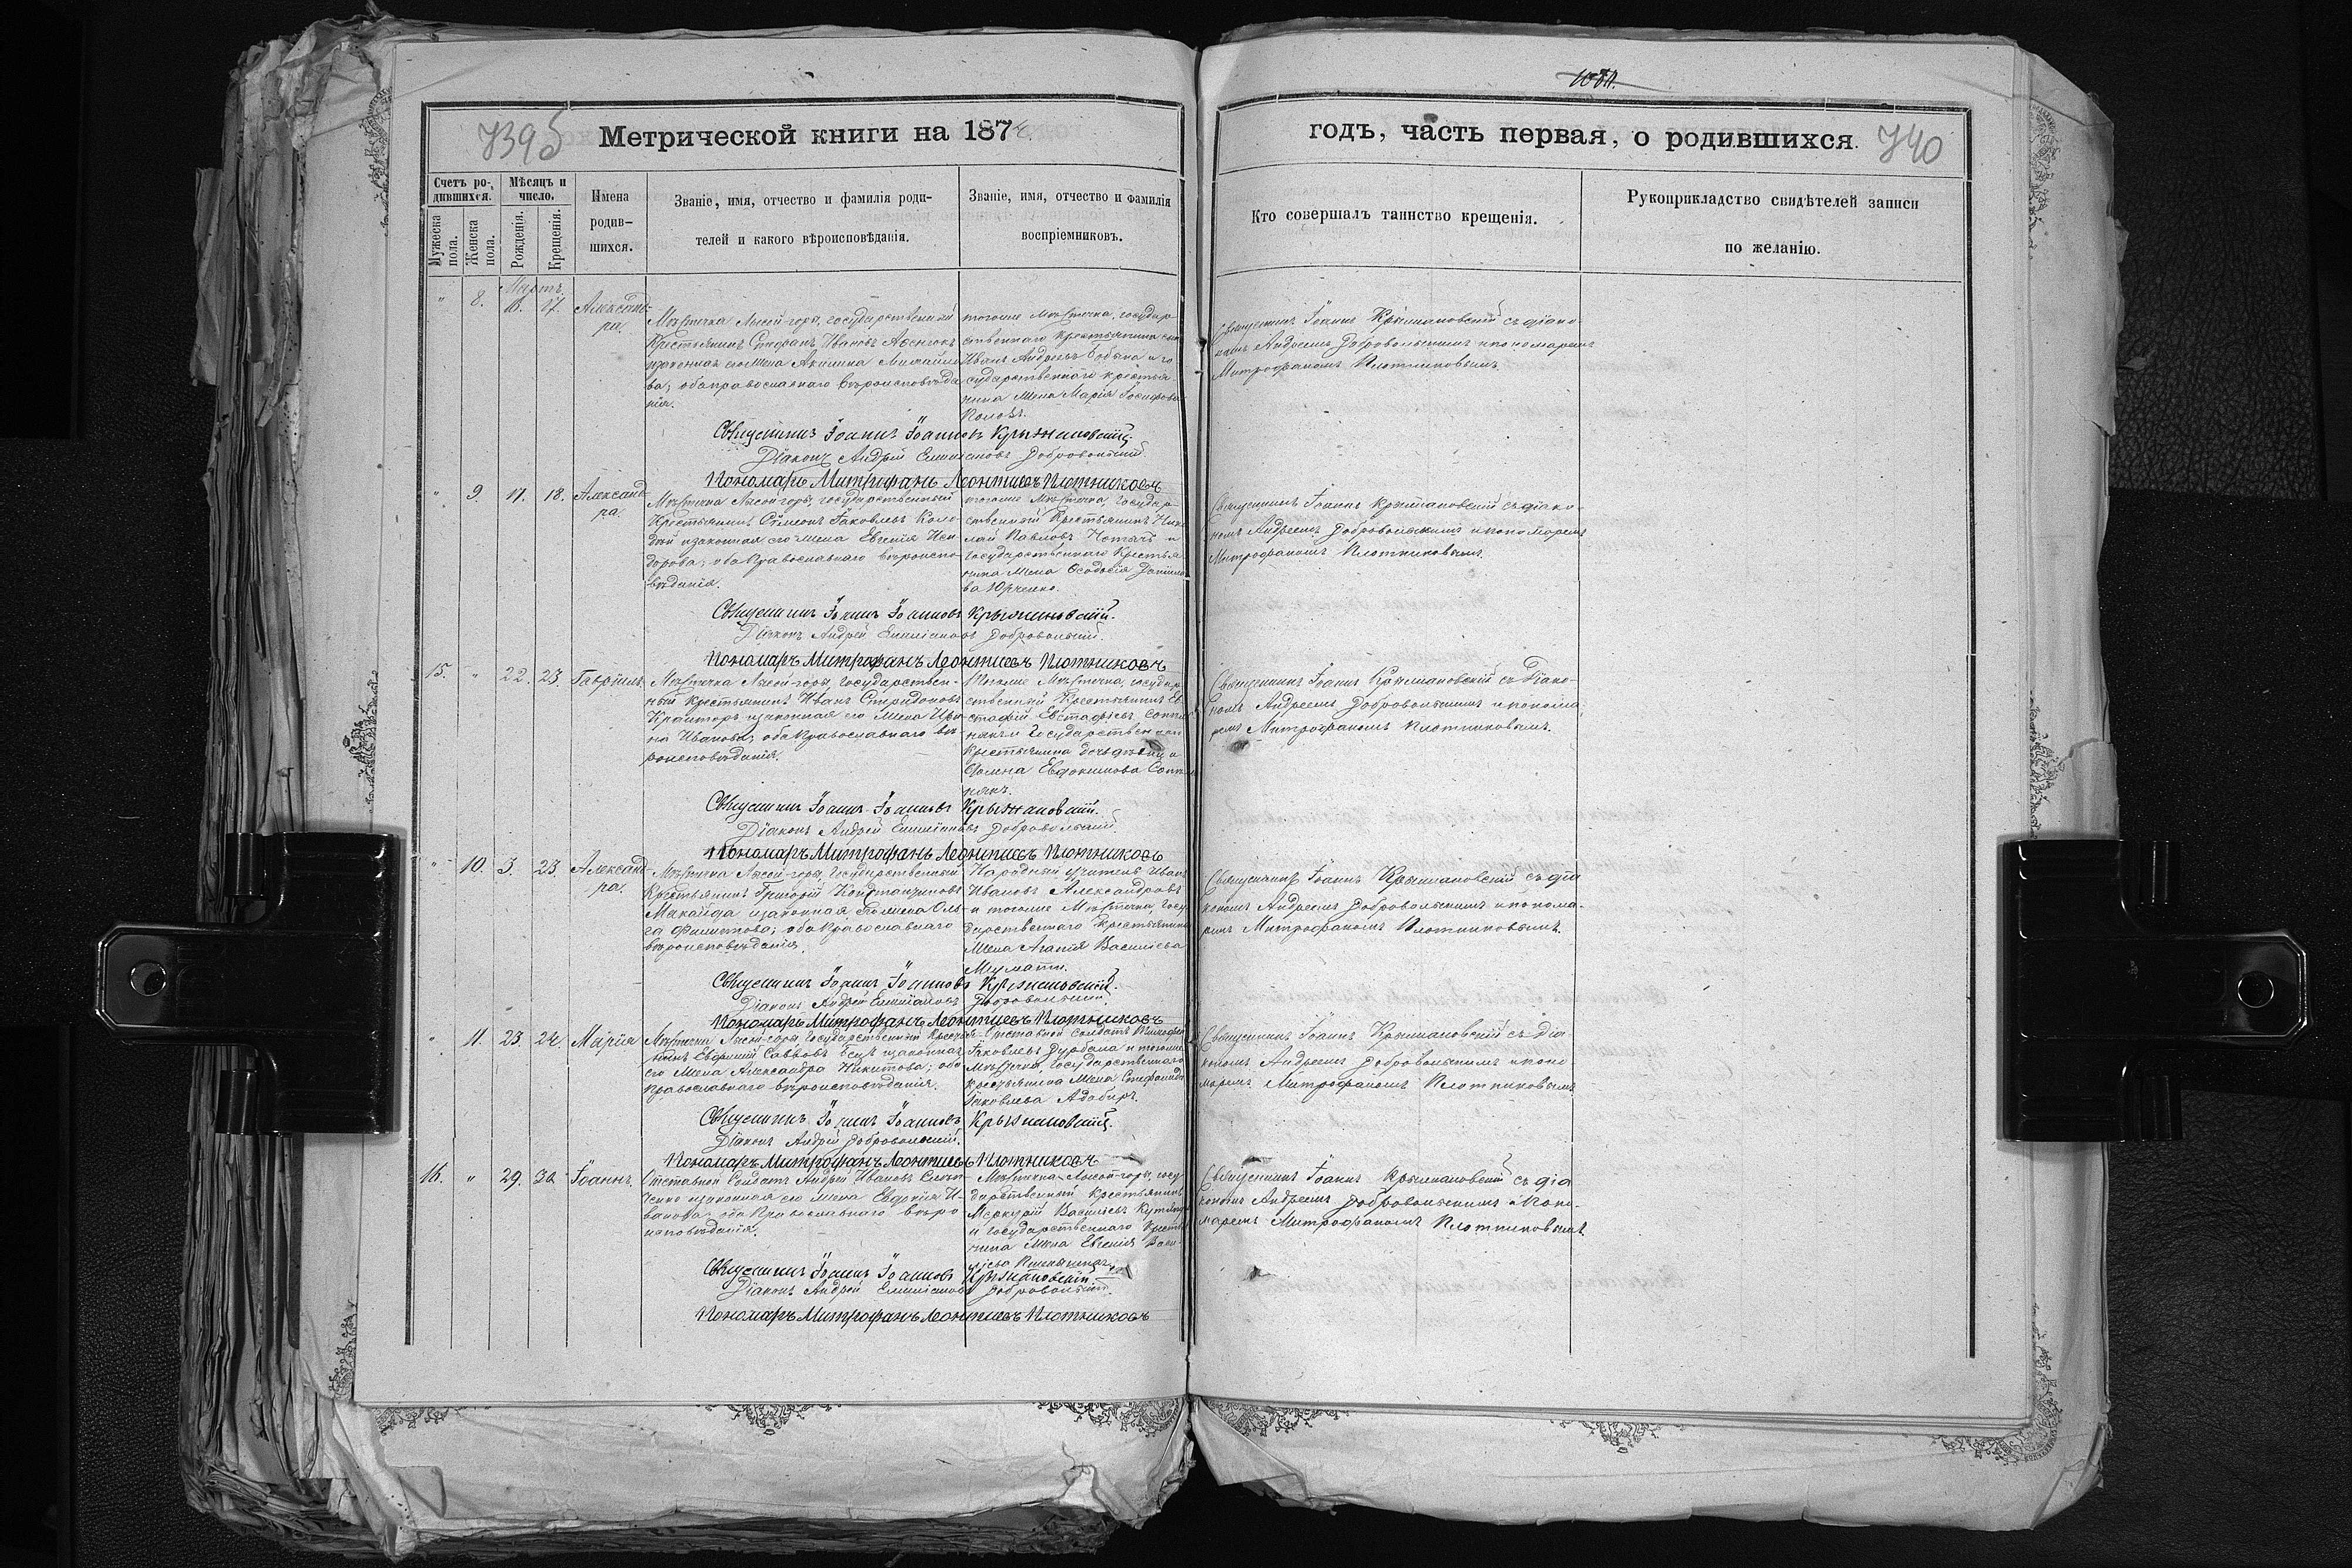 1080.
739б
Метрической книги на 1874
годъ, часть первая, о родившихся.
740
Счетъ ро-
дившихся.
Мужеска пола.
Женска пола.
Мѣсяцъ и
число.
Рожденія.
Крещенія.
Имена
родив-
шихся.
Званіе, имя, отчество и фамилія роди-
телей и какого вѣроисповѣданія.
Званіе, имя, отчество и фамилія
воспріемниковъ.
Кто совершалъ таинство крещенія.
Рукоприкладство свидѣтелей записи
по желанію.
Мартъ.
" 8. 17.
Александ-
ра.
Мѣстечка Лысой-горы, государственный
крестьянинъ Стефанъ Ивановъ
законная его жена Акилина Михайло
ва; оба православнаго вѣроисповѣда
нія.
тогоже Мѣстечка, государ-
ственнаго крестьянина сынъ
Иванъ Андреевъ Бобина и го
сударственнаго крестья-
нина жена Марія Іосифова
Священникъ Іоаннъ Крыжановскій съ діако-
номъ Андреемъ Добровольскимъ и пономаремъ
Митрофаномъ Плотниковымъ.
Священникъ Іоаннъ Іоанновъ Крыжановскій.
Діаконъ Андрей Емиліановъ Добровольскій.
Пономарь Митрофанъ Леонтиевъ Плотниковъ
" 9. 17. 18.
Александ-
ра.
Мѣстечка Лысой-горы, государственный
Крестьянинъ Сѵмеонъ Іаковлевъ Коло
дій и законная его жена Евгенія Иси
дорова; оба Православнаго вѣроиспо-
вѣданія.
тогоже Мѣстечка, государ-
ственный Крестьянинъ Нико
лай Павловъ и
Государственнаго Крестья
нина жена Ѳеодосія Данило
ва Юрченко.
Священникъ Іоаннъ Крыжановскій съ діако-
номъ Андреемъ Добровольскимъ и пономаремъ
Митрофаномъ Плотниковымъ.
Священникъ Іоаннъ Іоанновъ Крыжановскій.
Діаконъ Андрей Емиліановъ Добровольскій.
Пономарь Митрофанъ Леонтиевъ Плотниковъ
15. " 22. 23.
Гавріилъ.
Мѣстечка Лысой-горы, государствен-
ный крестьянинъ Иванъ Спиридоновъ
и законная его жена Ири-
на Иванова; оба Православнаго вѣ-
роисповѣданія.
тогоже Мѣстечка, государ-
ственный Крестьянинъ Ев-
стафій Евстафіевъ
Государственнаго
Крестьянина дочь дѣвица
Евдокимова
Священникъ Іоаннъ Крыжановскій съ Діако-
номъ Андреемъ Добровольскимъ и понома-
ремъ Митрофаномъ Плотниковымъ.
Священникъ Іоаннъ Іоанновъ Крыжановскій.
Діаконъ Андрей Емиліановъ Добровольскій.
Пономарь Митрофанъ Леонтиевъ Плотниковъ
" 10. 3. 23.
Александ-
ра.
Мѣстечка Лысой-горы, Государственный
Крестьянинъ Григорій Константиновъ
Макайда и законная его жена Оль-
га Филиппова; оба Православнаго
вѣроисповѣданія.
Народный учитель Иванъ
Ивановъ Александровъ
и тогоже Мѣстечка, Госу
дарственнаго Крестьянина
жена Агапія Василіева
Священникъ Іоаннъ Крыжановскій съ діа
кономъ Андреемъ Добровольскимъ и понома-
ремъ Митрофаномъ Плотниковымъ.
Священникъ Іоаннъ Іоанновъ Крыжановскій.
Діаконъ Андрей Емиліановъ Добровольскій.
Пономарь Митрофанъ Леонтиевъ Плотниковъ
" 11. 23. 24.
Марія
Мѣстечка Лысой-горы, Государственный Кресть
янинъ Евфимій Саввовъ и законная
его жена Александра Никитова; оба
Православнаго вѣроисповѣданія.
Отставной солдатъ
Іаковлевъ Дурбала и тогоже
Мѣстечка, государственнаго
крестьянина жена Стефанида
Іаковлева
Священникъ Іоаннъ Крыжановскій съ Діа-
кономъ Андреемъ Добровольскимъ и поно
маремъ Митрофаномъ Плотниковымъ.
Священникъ Іоаннъ Іоанновъ Крыжановскій.
Діаконъ Андрей Добровольскій.
Пономарь Митрофанъ Леонтиевъ Плотниковъ
16. " 29. 30.
Іоаннъ.
Отставной Солдатъ Андрей Ивановъ
и законная его жена Евдокія И-
ванова; оба Православнаго вѣро
исповѣданія.
Мѣстечка Лысой-горы, госу-
дарственный крестьянинъ
Меркурій Василіевъ
и государственнаго Крестья
нина жена Евгенія Васи-
ліева
Священникъ Іоаннъ Крыжановскій съ діа
кономъ Андреемъ Добровольскимъ и Поно-
маремъ Митрофаномъ Плотниковымъ.
Священникъ Іоаннъ Іоанновъ Крыжановскій.
Діаконъ Андрей Емиліановъ Добровольскій.
Пономарь Митрофанъ Леонтиевъ Плотниковъ